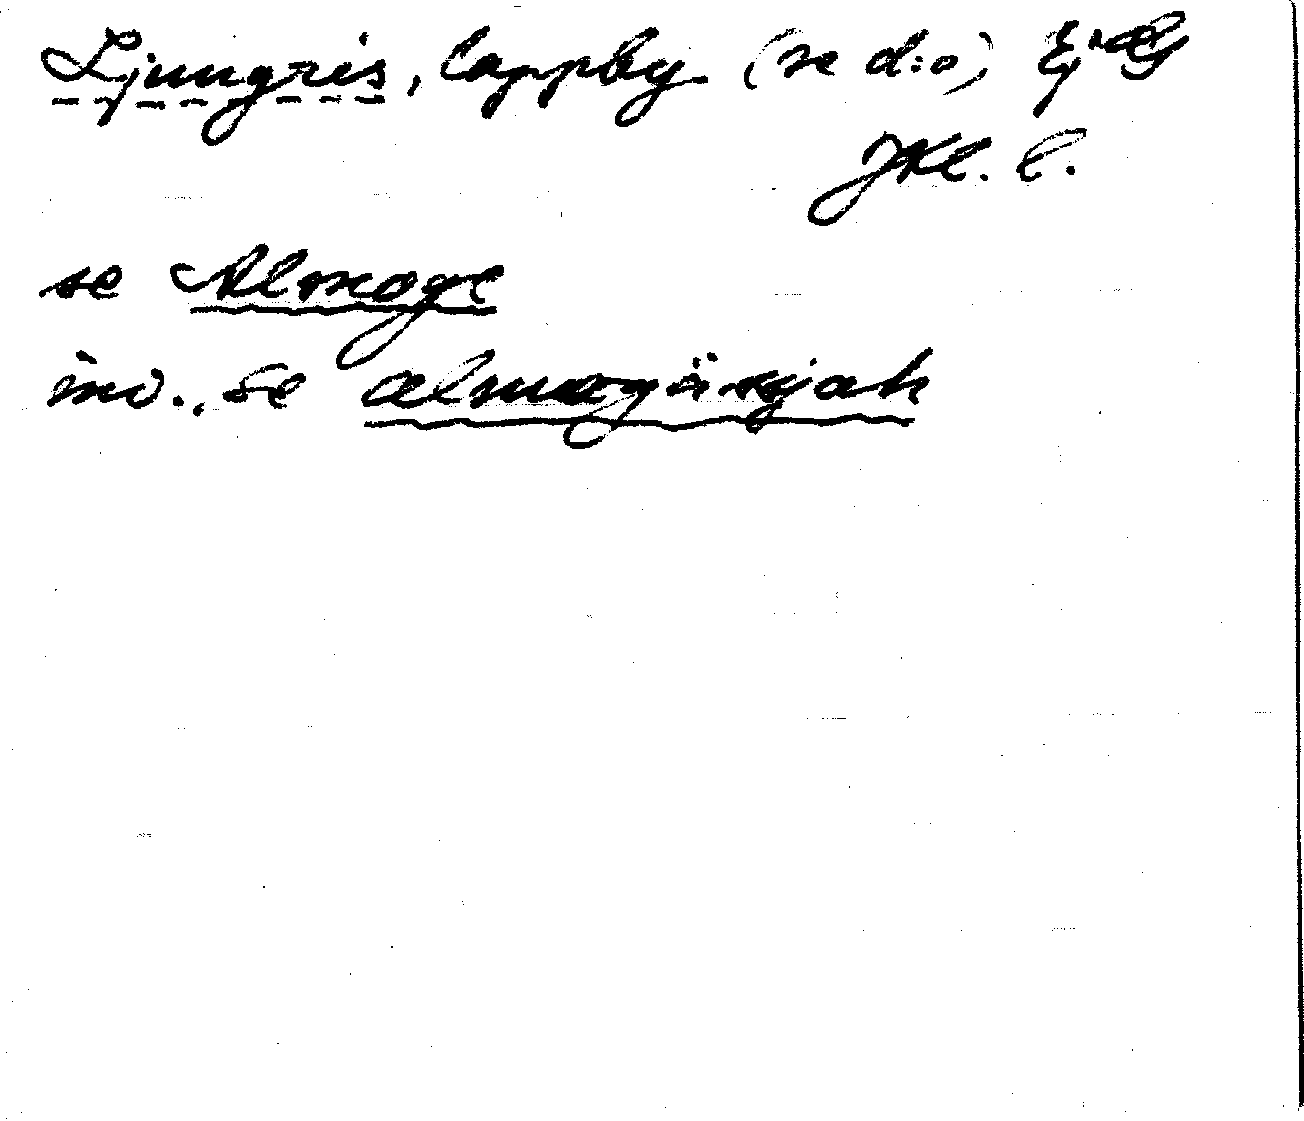 Ljungris, lappby (se d:o) Ej
JKl. l.
se Almoge
inv., se almogiskjah